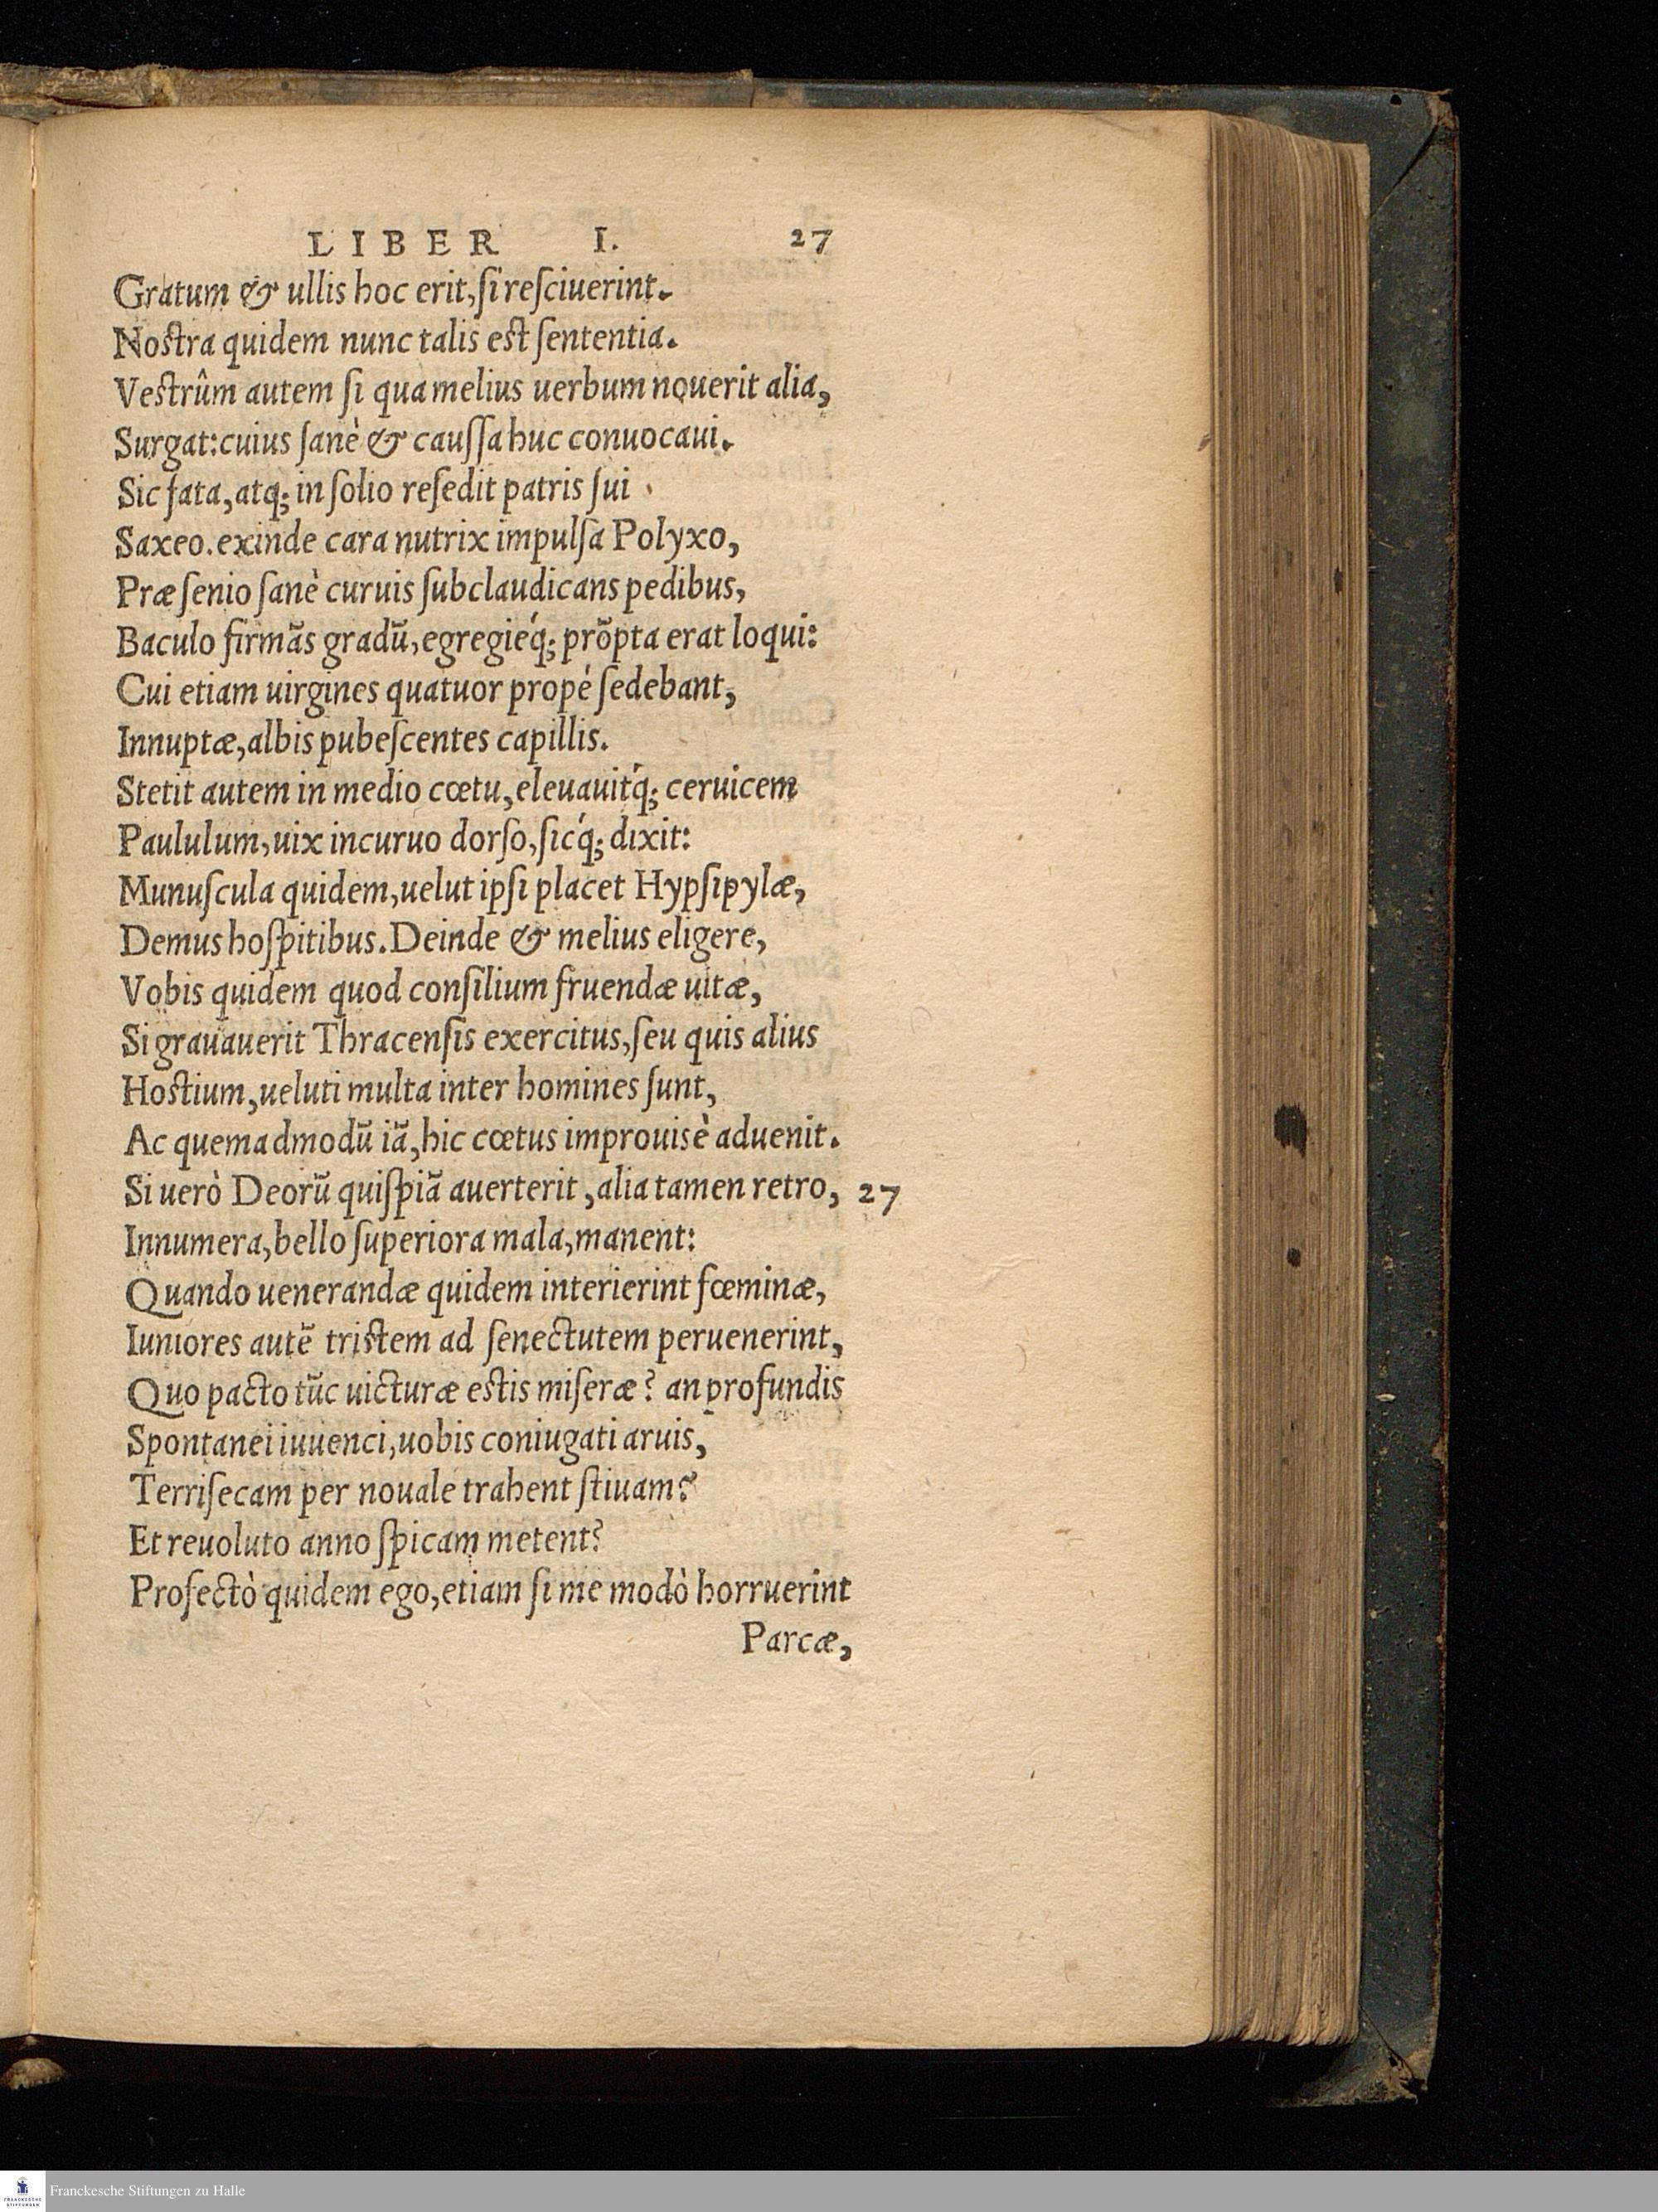 LIBER I. 27
Gratum & ullis hoc erit, ſi reſciuerint.
Noſtra quidem nunc talis eſt ſententia.
Veſtrûm autem ſi qua melius uerbum nouerit alia,
Surgat: cuius ſanè & cauſſa huc conuocaui.
Sic fata, atq; in ſolio reſedit patris ſui
Saxeo. exinde cara nutrix impulſa Polyxo,
Præ ſenio ſanè curuis ſubclaudicans pedibus,
Baculo firmãs gradũ, egregieq́; prõpta erat loqui:
Cui etiam uirgines quatuor propé ſedebant,
Innuptæ, albis pubeſcentes capillis.
Stetit autem in medio cœtu, eleuauitq́; ceruicem
Paululum, uix incuruo dorſo, ſicq́; dixit:
Munuſcula quidem, uelut ipſi placet Hypſipylæ,
Demus hoſpitibus. Deinde & melius eligere,
Vobis quidem quod conſilium fruendæ uitæ,
Si grauauerit Thracenſis exercitus, ſeu quis alius
Hoſtium, ueluti multa inter homines ſunt,
Ac quemadmodũ iã, hic cœtus improuisè aduenit.
Si uerò Deorũ quiſpiã auerterit, alia tamen retro, 27
Innumera, bello ſuperiora mala, manent:
Quando uenerandæ quidem interierint fœminæ,
Iuniores autẽ triſtem ad ſenectutem peruenerint,
Quo pacto tũc uicturæ eſtis miſeræ? an profundis
Spontanei iuuenci, uobis coniugati aruis,
Terriſecam per nouale trahent ſtiuam?
Et reuoluto anno ſpicam metent?
Profectò quidem ego, etiam ſi me modò horruerint
Parcæ,
FRANCKESCHE
STIFTUNGEN
Franckesche Stiftungen zu Halle